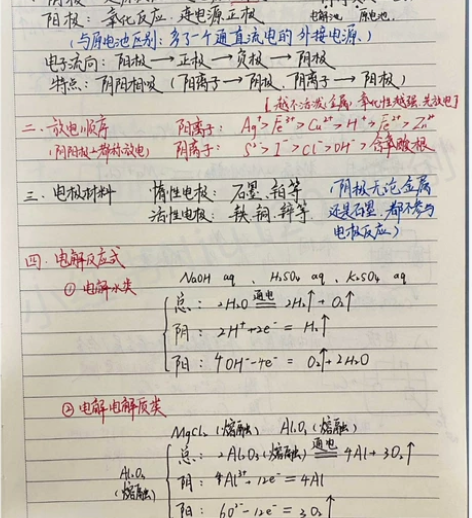 阳极：氧化反应，连电源正极　电解池　原电池
（与原电池区别：多了一个通直流电的外接电源。）
电子流向：阳极→正极→负极→阴极
特点：阴阳相吸（阳离子→阴极，阴离子→阳极）
[越不活泼金属，氧化性越强，先放电]
二．放电顺序　阳离子：Ag⁺>Fe³⁺>Cu²⁺>H⁺>Fe²⁺>Zn²⁺
阴离子：S²⁻>I⁻>Cl⁻>OH⁻>含氧酸根
三．电极材料　惰性电极：石墨、铂等（阴极无论金属
活性电极：铁、铜、锌等　还是石墨，都不参与
电极反应）
四．电解反应式
① 电解水类　NaOH aq、H₂SO₄ aq、K₂SO₄ aq
总：2H₂O 通电 2H₂↑+O₂↑
阴：2H⁺+2e⁻=H₂↑
阳：4OH⁻-4e⁻=O₂↑+2H₂O
② 电解电解质类
MgCl₂（熔融）Al₂O₃（熔融）
总：2Al₂O₃（熔融）通电 4Al+3O₂↑
Al₂O₃（熔融）
阴：4Al³⁺+12e⁻=4Al
阳：6O²⁻-12e⁻=3O₂↑